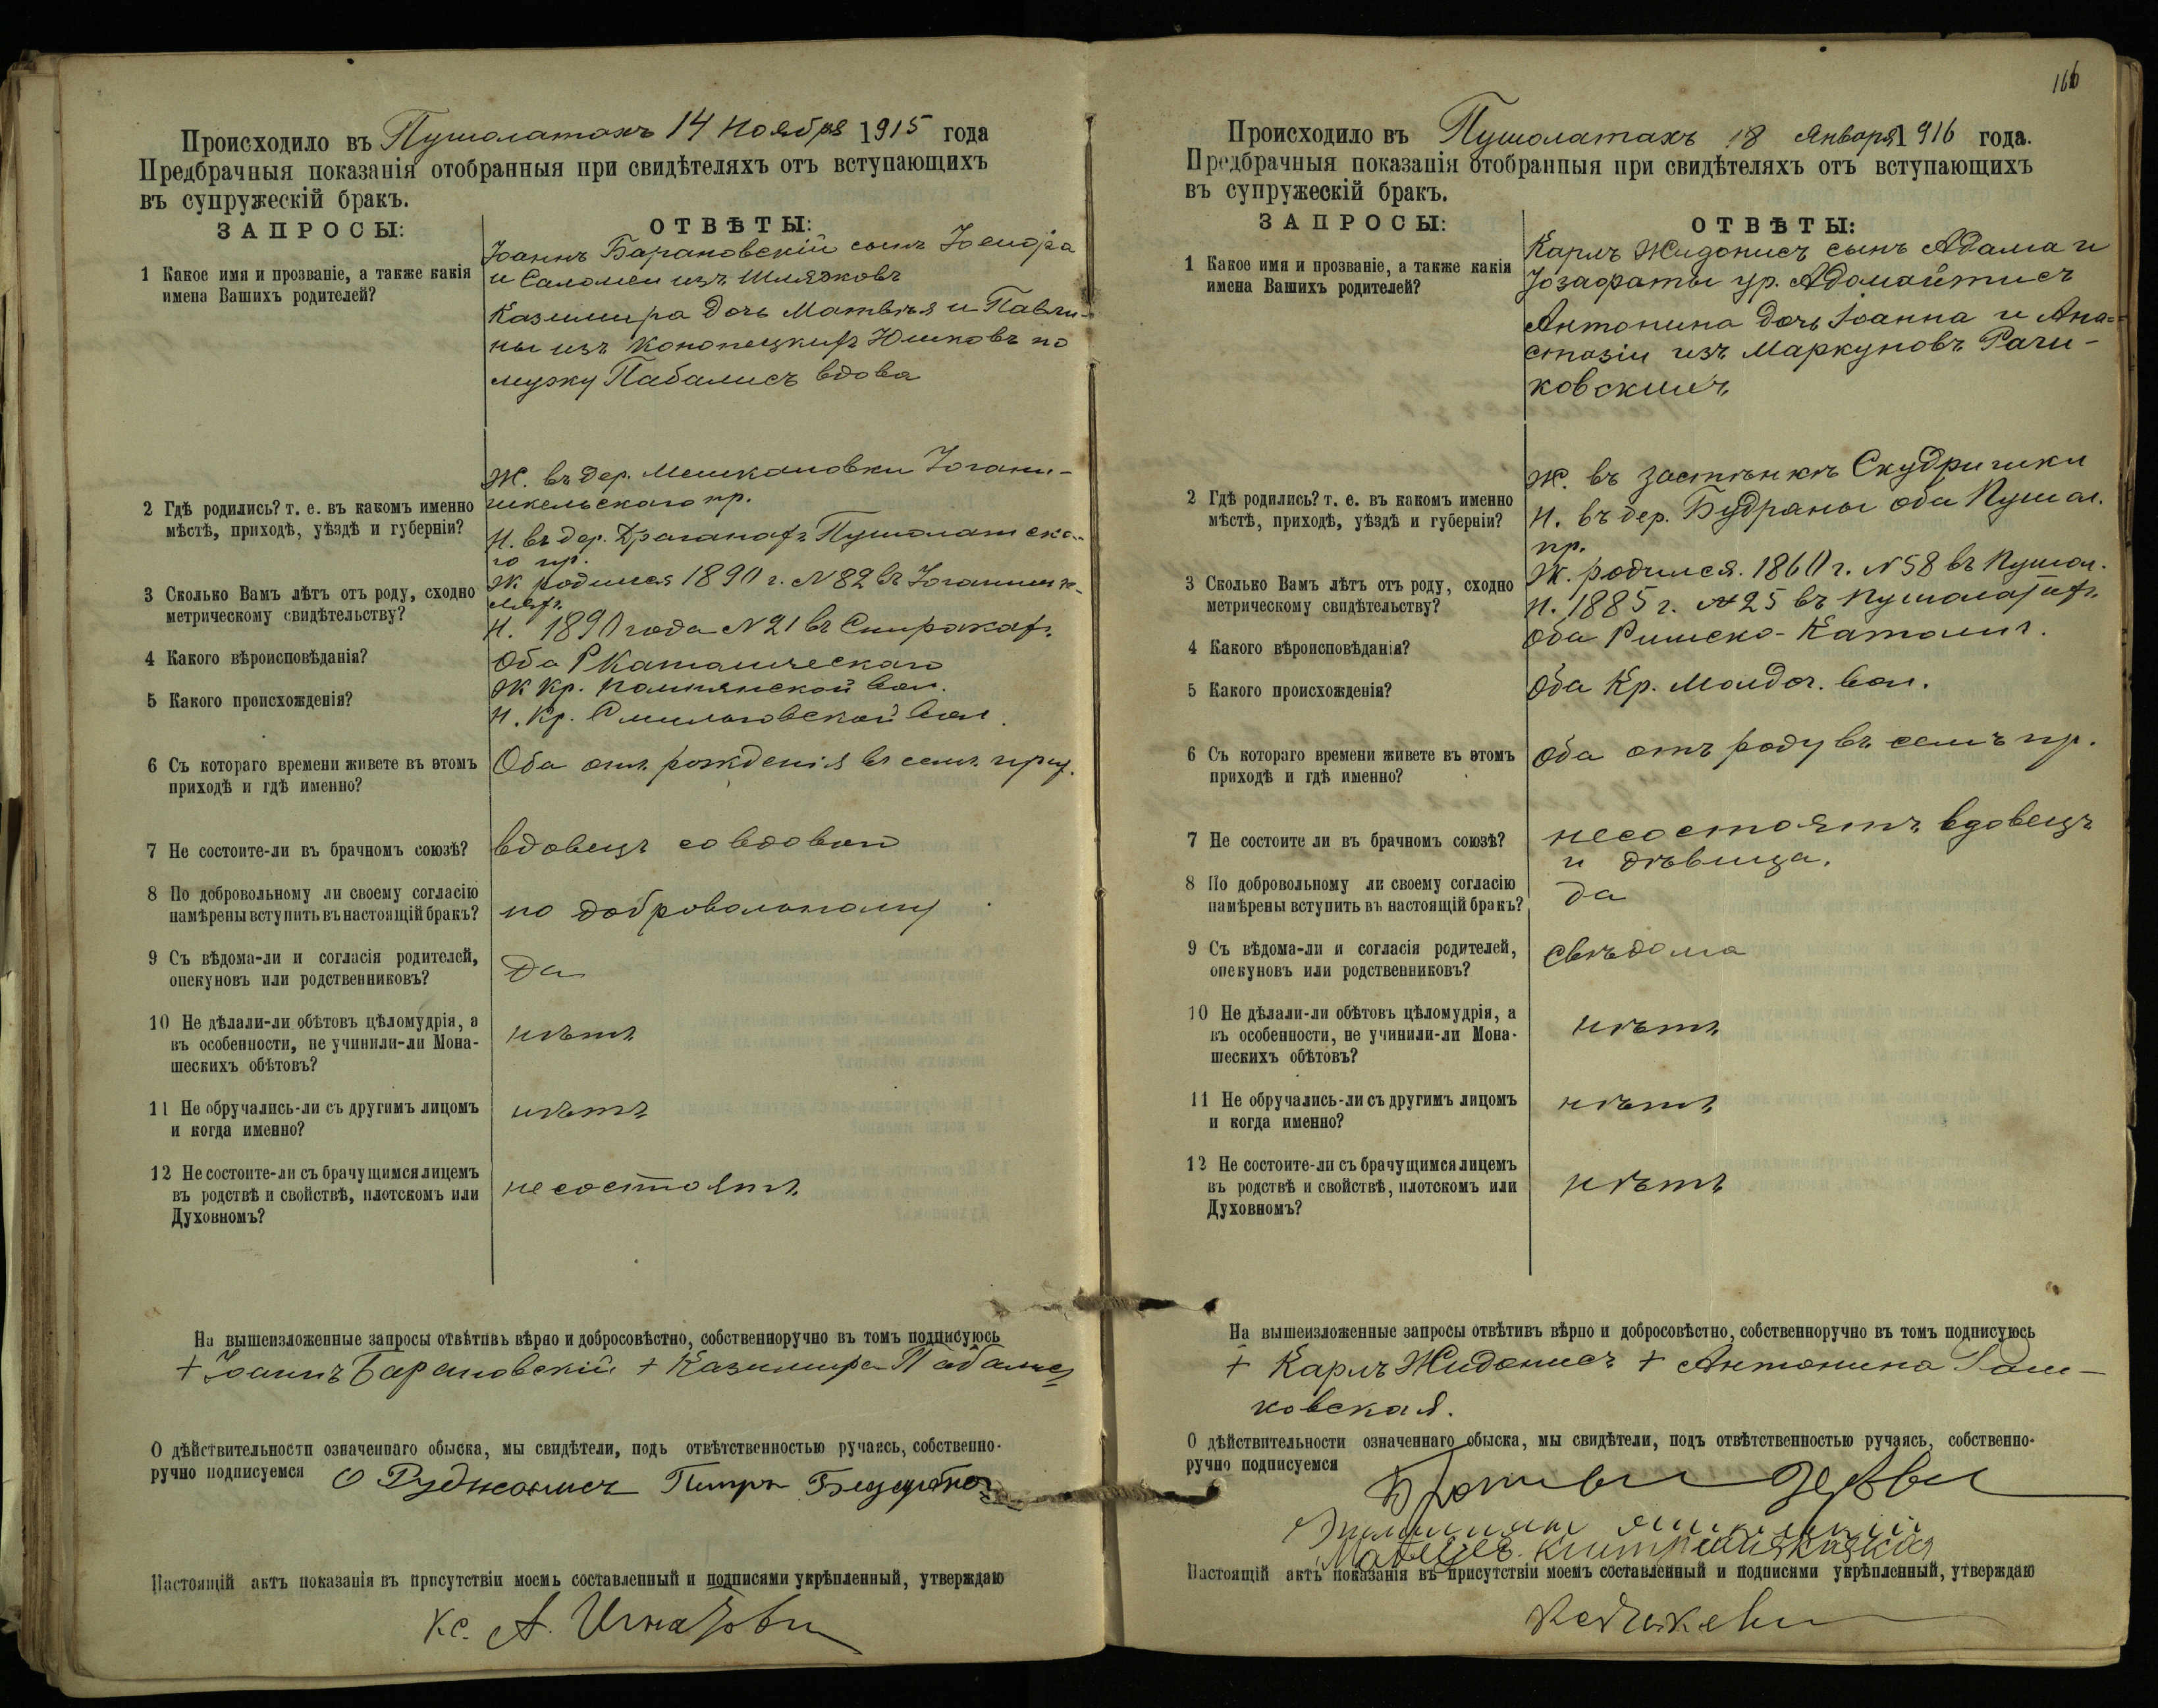 Происходило въ Пушолатахъ 14 Ноября 1915 года
Предбрачныя показанія отобранныя при свидѣтеляхъ отъ вступающихъ
въ супружескій бракъ.
ЗАПРОСЫ:
ОТВѢТЫ:
1 Какое имя и прозваніе, а также какія
имена Вашихъ родителей?
Іоаннъ Барановскій сынъ
и Саломеи изъ
Казимира дочь Матвѣя и Павли-
ны изъ Юшковъ по
мужу Пабалисъ вдова
2 Гдѣ родились? т. е. въ какомъ именно
мѣстѣ, приходѣ, уѣздѣ и губерніи?
Ж. въ дер. Іогани-
шкельскаго пр.
Н. въ дер. Драганахъ Пушолатска-
го пр.
3 Сколько Вамъ лѣтъ отъ роду, сходно
метрическому свидѣтельству?
Ж. родился 1890 г. N 82 въ Іоганишк-
еляхъ
Н. 1890 года N 21 въ
4 Какого вѣроисповѣданія?
Оба Р Католическаго
5 Какого происхожденія?
Ж Кр. вол.
Н. Кр. Смильговской вол.
6 Съ котораго времени живете въ этомъ
приходѣ и гдѣ именно?
Оба отъ рожденія въ семъ прих.
7 Не состоите-ли въ брачномъ союзѣ?
вдовецъ со вдовой
8 По добровольному ли своему согласію
намѣрены вступить въ настоящій бракъ?
по добровольному
9 Съ вѣдома-ли и согласія родителей,
опекуновъ или родственниковъ?
Да
10 Не дѣлали-ли обѣтовъ цѣломудрія, а
въ особенности, не учинили-ли Мона-
шескихъ обѣтовъ?
нѣтъ
11 Не обручались-ли съ другимъ лицомъ
и когда именно?
нѣтъ
12 Не состоите-ли съ брачущимся лицемъ
въ родствѣ и свойствѣ, плотскомъ или
Духовномъ?
не состоятъ
На вышеизложенные запросы отвѣтивъ вѣрно и добросовѣстно, собственноручно въ томъ подписуюсь
+ Іоаннъ Барановскій + Казимира Пабалисъ
О дѣйствительности означеннаго обыска, мы свидѣтели, подъ отвѣтственностью ручаясь, собственно-
ручно подписуемся О Руджонисъ Петръ
Настоящій актъ показанія въ присутствіи моемъ составленный и подписями укрѣпленный, утверждаю
Кс. А.
166
Происходило въ Пушолатахъ 18 Января 1916 года.
Предбрачныя показанія отобранныя при свидѣтеляхъ отъ вступающихъ
въ супружескій бракъ.
ЗАПРОСЫ:
ОТВѢТЫ:
1 Какое имя и прозваніе, а также какія
имена Вашихъ родителей?
Карлъ Жидонисъ сынъ Адама и
Іозафаты ур. Адомайтисъ
Антонина дочь Іоанна и Ана-
стазіи изъ Маркуновъ Рачи-
ковскихъ
2 Гдѣ родились? т. е. въ какомъ именно
мѣстѣ, приходѣ, уѣздѣ и губерніи?
Ж. въ застѣнкѣ Скудришки
Н. въ дер. Будраны оба Пушол.
пр.
3 Сколько Вамъ лѣтъ отъ роду, сходно
метрическому свидѣтельству?
Ж. родился. 1860 г. N 58 въ Пушол.
Н. 1885 г. N 25 въ Пушолатахъ
4 Какого вѣроисповѣданія?
Оба Римско-Католич.
5 Какого происхожденія?
Оба Кр. вол.
6 Съ котораго времени живете въ этомъ
приходѣ и гдѣ именно?
Оба отъ роду въ семъ пр.
7 Не состоите ли въ брачномъ союзѣ?
несостоятъ вдовецъ
и дѣвица.
8 По добровольному ли своему согласію
намѣрены вступить въ настоящій бракъ?
Да
9 Съ вѣдома-ли и согласія родителей,
опекуновъ или родственниковъ?
свѣдома
10 Не дѣлали-ли обѣтовъ цѣломудрія, а
въ особенности, не учинили-ли Мона-
шескихъ обѣтовъ?
нѣтъ
11 Не обручались-ли съ другимъ лицомъ
и когда именно?
нѣтъ
12 Не состоите-ли съ брачущимся лицемъ
въ родствѣ и свойствѣ, плотскомъ или
Духовномъ?
нѣтъ
На вышеизложенные запросы отвѣтивъ вѣрно и добросовѣстно, собственноручно въ томъ подписуюсь
+ Карлъ Жидонисъ + Антонина Рачи-
ковская.
О дѣйствительности означеннаго обыска, мы свидѣтели, подъ отвѣтственностью ручаясь, собственно-
ручно подписуемся
Настоящій актъ показанія въ присутствіи моемъ составленный и подписями укрѣпленный, утверждаю